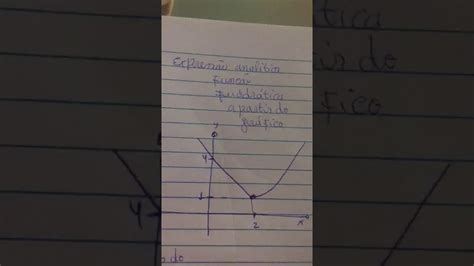 Expressão analítica
função
quadrática
a partir do
gráfico
y
4
1
2
x
do
4